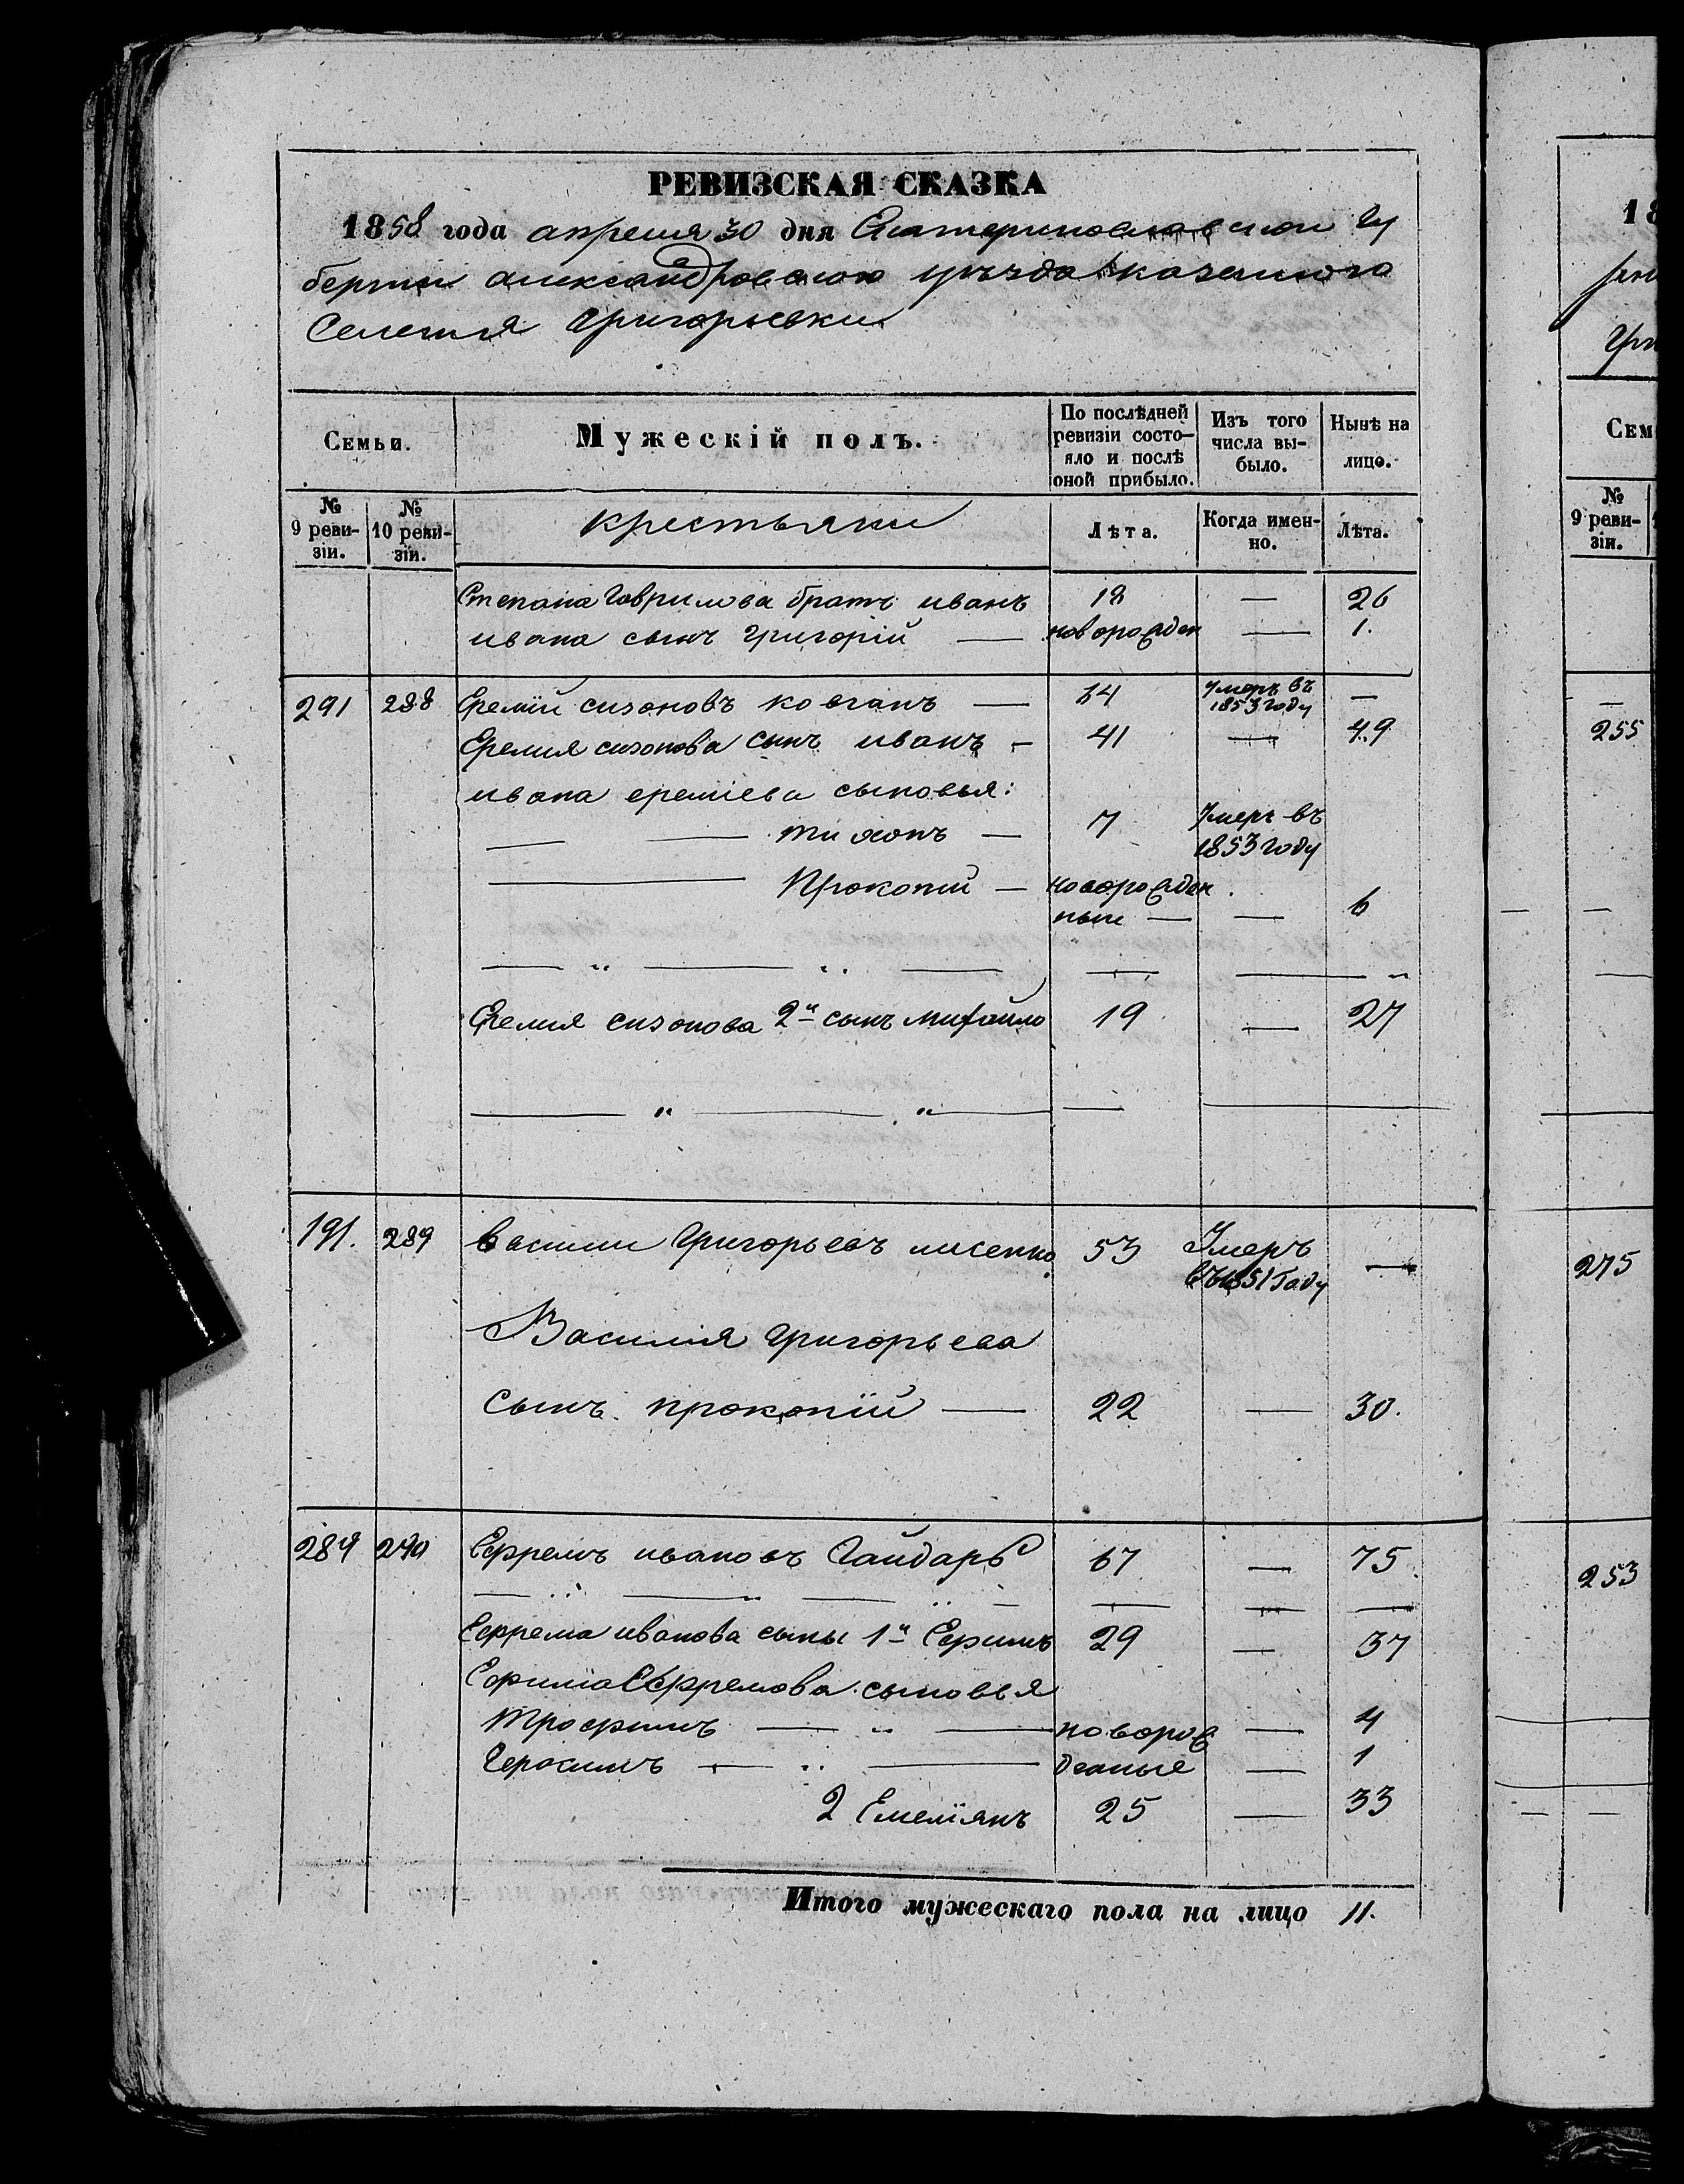 РЕВИЗСКАЯ СКАЗКА
1858 года апреля 30 дня Екатеринославской гу
берніи александровскою уѣзда казенного
Селенія Григорьевки
Семьи.
Мужескій полъ.
По послѣдней ревизіи состо-
яло и послѣ
оной прибыло.
Изъ того
числа вы-
было.
Нынѣ на
лицо.
№
9 реви-
зіи.
№
10 реви-
зіи.
крестьяни
Лѣта.
Когда имен-
но.
Лѣта.
Степана Гаврилова братъ иванъ 18 — 26
ивана сынъ григорій — новорожден — 1.
291 288 Еремій сизоновъ ковганъ — 34 Умеръ въ 1853 году —
Еремия сизонова сынъ иванъ — 41 — 49
ивана ереміева сыновья:
— — тихонъ — 7 Умеръ въ
1853 году
— Прокопій — новорожден
ныи — — 6
— „ — „ — — — „
Еремия сизонова 2й сынъ михайло 19 — 27
— „ — „ — — —
191. 289 Василии Григорьевъ лисенко 53 Умеръ
въ 1851 Году —
Василия григорьева
сынъ прокопій — 22 — 30.
289 290 Ефремъ ивановъ Гайдарь 67 — 75
— „ — „ — „ — — — —
Ефрема иванова сыны 1й Ефимъ 29 — 37
Ефима Ефремова сыновья
Трофимъ — „ — новорож — 4
Герасимъ — „ — деные — 1
2 Емеліянъ 25 — 33
Итого мужескаго пола на лицо 11.
18
Гри
Сем
№
9 реви-
зіи.
—
255
— —
—
275
253
— —